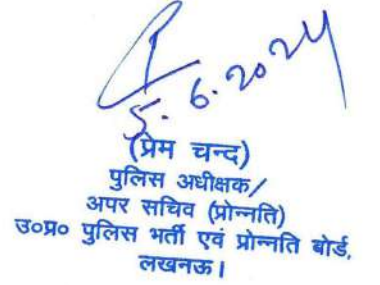 5.6.2024
(प्रेम चन्द)
पुलिस अधीक्षक/
अपर सचिव (प्रोन्नति)
उ०प्र० पुलिस भर्ती एवं प्रोन्नति बोर्ड,
लखनऊ।